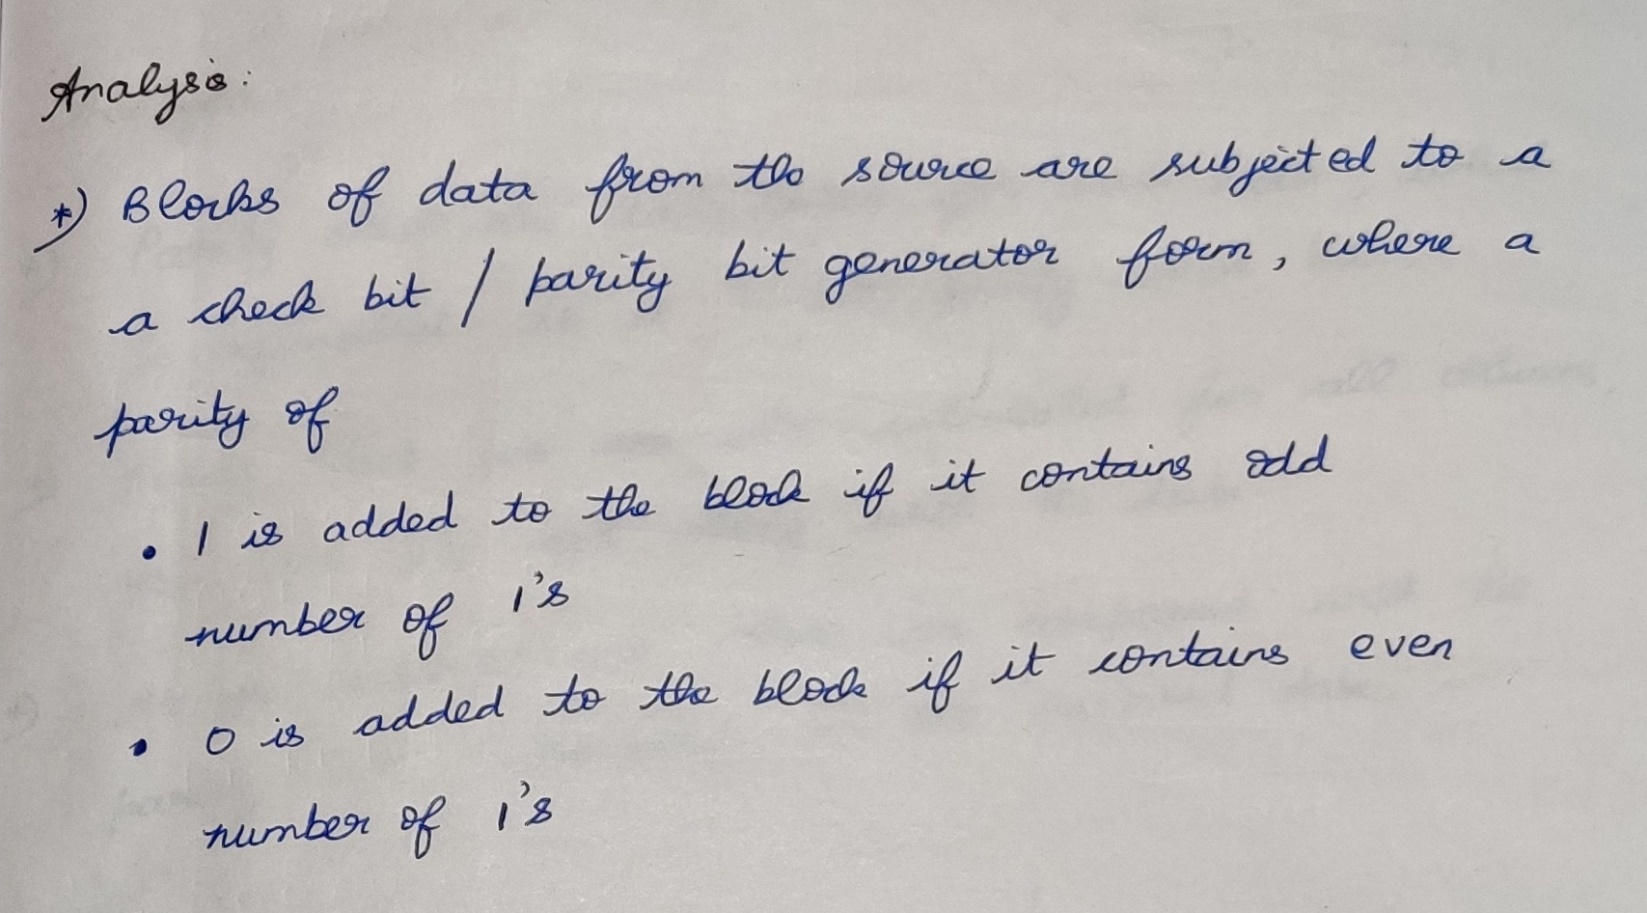 Analysis:
*) Blocks of data from the source are subjected to a
a check bit / parity bit generator form, where a
parity of
• 1 is added to the block if it contains odd
number of 1's
• 0 is added to the block if it contains even
number of 1's